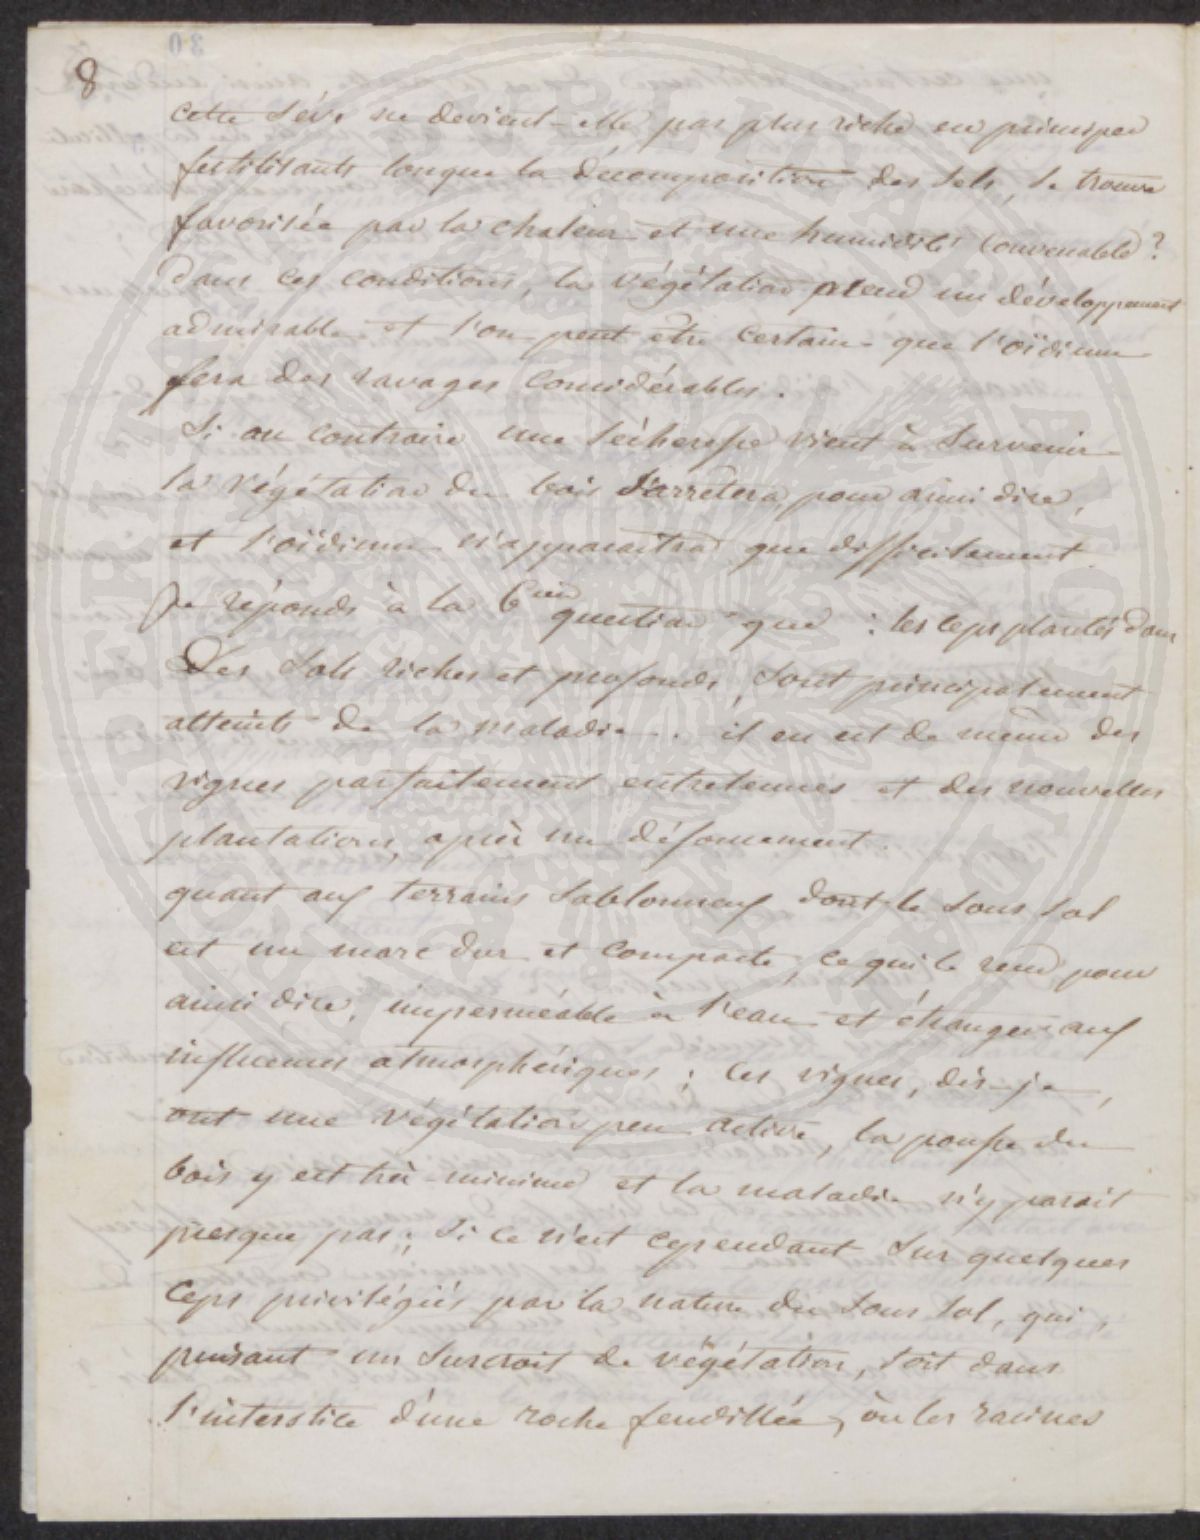 8
cette sève ne devient-elle pas plus riche en principes
fertilisants lorsque la décomposition des sels, se trouve
favorisée par la chaleur et une humidité convenable ?
Dans ces conditions, la végétation prend un développement
admirable et l'on peut être certain que l'oïdium
fera des ravages considérables.
Si au contraire une sécheresse vient à survenir
la végétation du bois s'arrêtera, pour ainsi dire,
et l'oïdium n'apparaitra que difficilement.
Je réponds à la 6me question que : les ceps plantés dans
Des sols riches et profonds, sont principalement
atteints de la maladie. il en est de même des
vignes parfaitement entretenues et des nouvelles
plantations, après un défoncement.
quant aux terrains sablonneux dont le sous sol
est un marc dur et compacte, ce qui le rend pour
ainsi dire, imperméable à l'eau et étranger aux
influences atmosphériques ; ces vignes, dis-je,
ont une végétation peu active, la pousse du
bois y est très-minime et la maladie n'y parait
presque pas ; si ce n'est cependant sur quelques
ceps privilégiés par la nature du sous sol, qui,
puisant un surcroit de végétation, soit dans
l'interstice d'une roche fendillée, où les racines